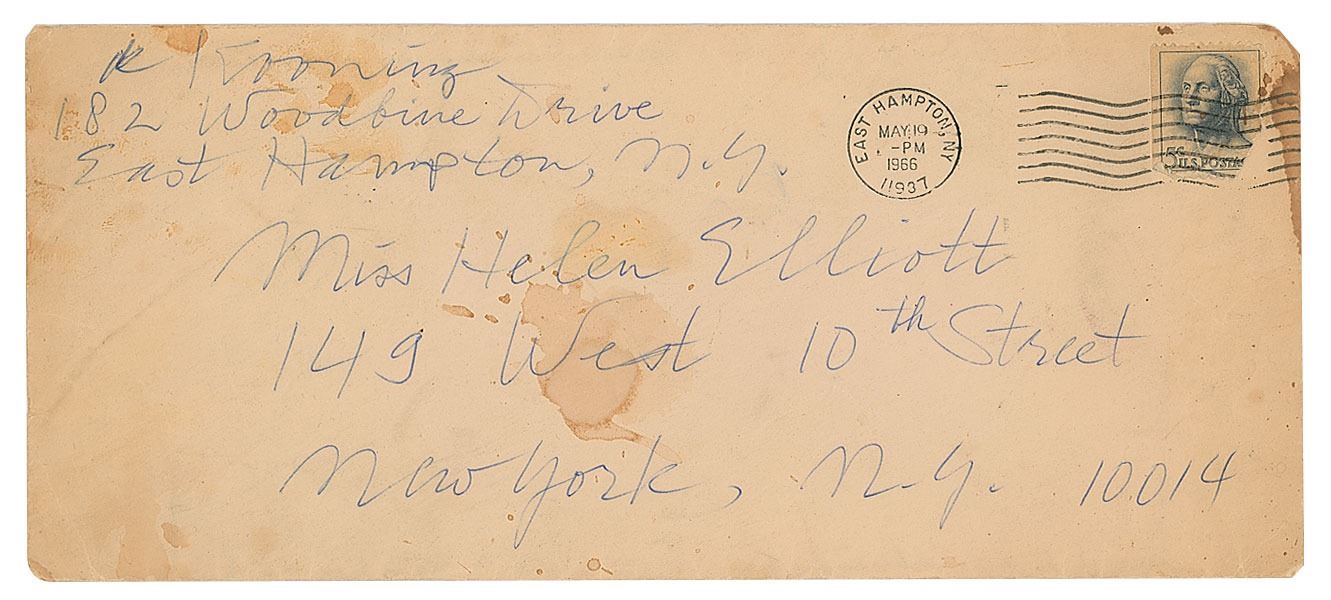 de Kooning
182 Woodbine Drive
East Hampton, N.Y.
EAST HAMPTON, NY
MAY 19
-PM
1966
11937
5¢ U.S. POSTAGE
Miss Helen Elliott
149 West 10th Street
New York, N.Y. 10014